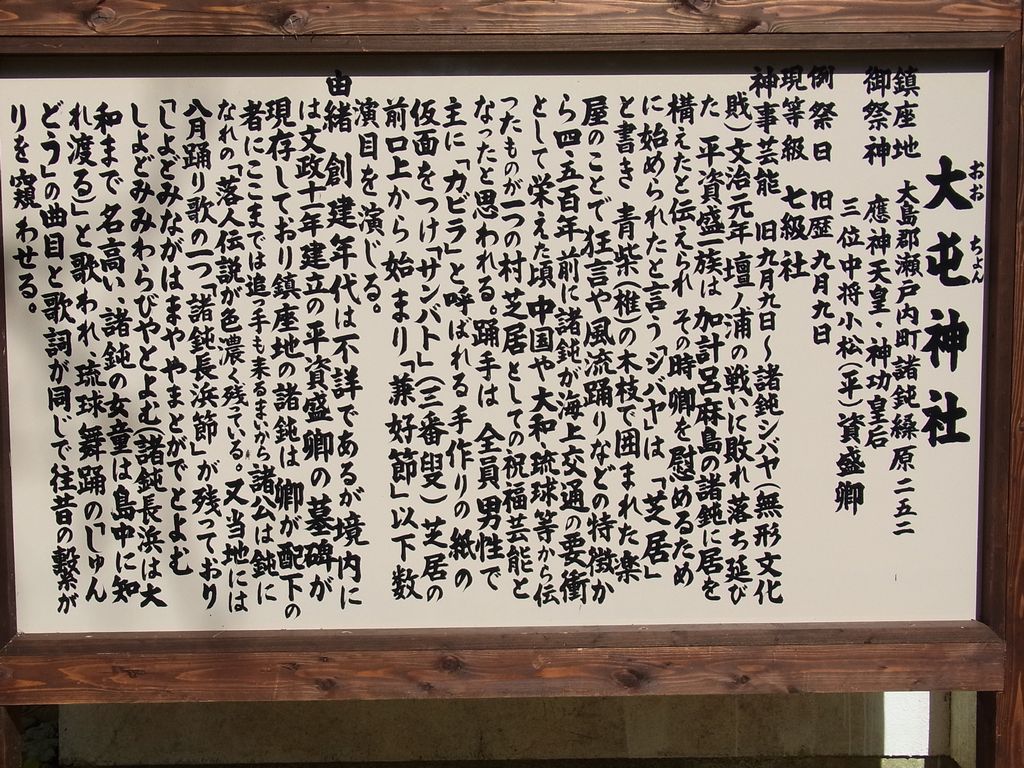 大屯神社
おお ちょん
鎮座地 大島郡瀬戸内町諸鈍繰原二五二
御祭神 應神天皇・神功皇后
三位中将小松(平)資盛卿
例祭日 旧歴 九月九日
現等級 七級社
神事芸能 旧九月九日〜諸鈍シバヤ(無形文化
財)文治元年 壇ノ浦の戦いに敗れ落ち延び
た 平資盛一族は 加計呂麻島の諸鈍に居を
構えたと伝えられ その時 卿を慰めるため
に始められたと言う「ジバヤ」は 「芝居」
と書き 青柴(椎)の木枝で囲まれた楽
屋のことで 狂言や風流踊りなどの特徴か
ら四五百年前に諸鈍が海上交通の要衝
として栄えた頃 中国や大和 琉球等から伝
ったものが一つの村 芝居としての祝福芸能と
なったと思われる。踊手は 全員男性で
主に「カビラ」と呼ばれる手作りの紙の
仮面をつけ「サンバト」(三番叟)芝居の
前口上から始まり「兼好節」以下数
演目を演じる。
由緒 創建年代は不詳であるが境内に
は文政十年建立の平資盛卿の墓碑が
現存しており鎮座地の諸鈍は 卿が配下の
者にここまでは追っ手も来るまいから諸公は鈍に
なれの「落人伝説が色濃く残っている。又当地には
八月踊り歌の一つ「諸鈍長浜節」が残っており
「しよどみながはまや やまとがでとよむ
しよどみみわらびやとよむ(諸鈍長浜は大
和まで名高い、諸鈍の女童は島中に知
れ渡る)」と歌われ、琉球舞踊の「しゅん
どう」の曲目と歌詞が同じで往昔の繫がが
りを窺わせる。